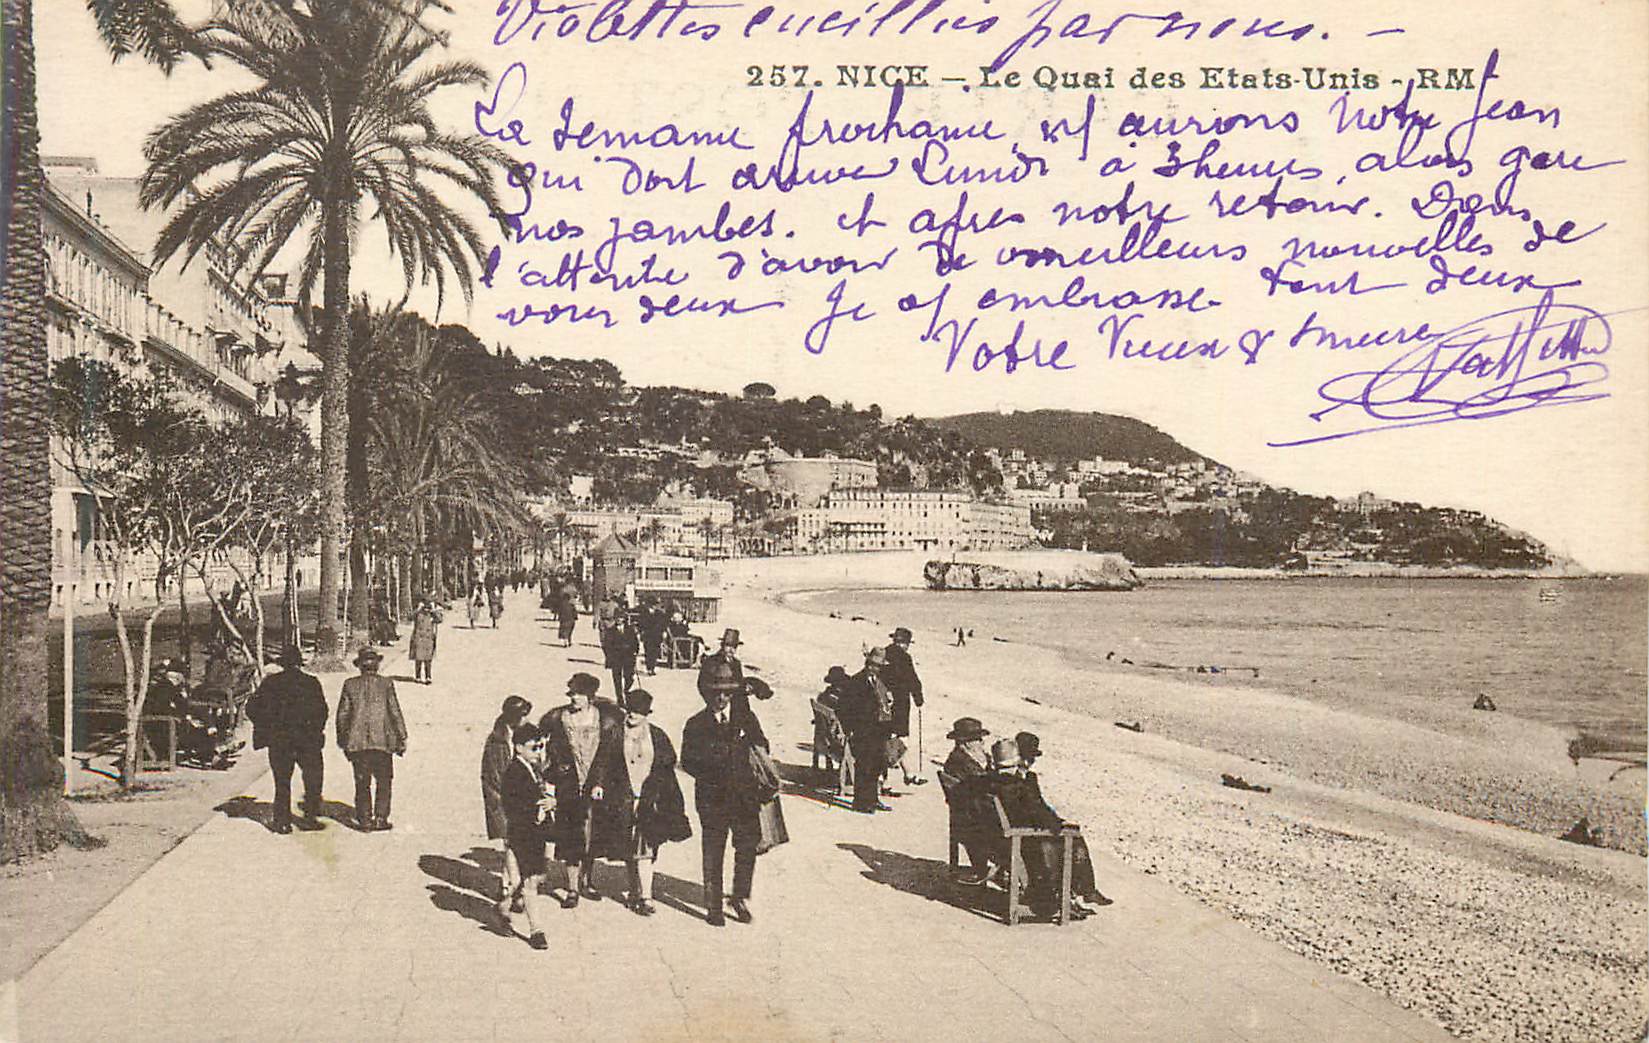 Violettes cueillies par nous. —
257. NICE — Le Quai des Etats-Unis - RM
La semaine prochaine, ns aurons Notre Jean
qui doit arriver Lundi à 3 heures, alors gare
nos jambes. et après notre retour. Dans
l'attente d'avoir de meilleurs nouvelles de
vous deux Je embrasse tout deux
Votre Vieux &